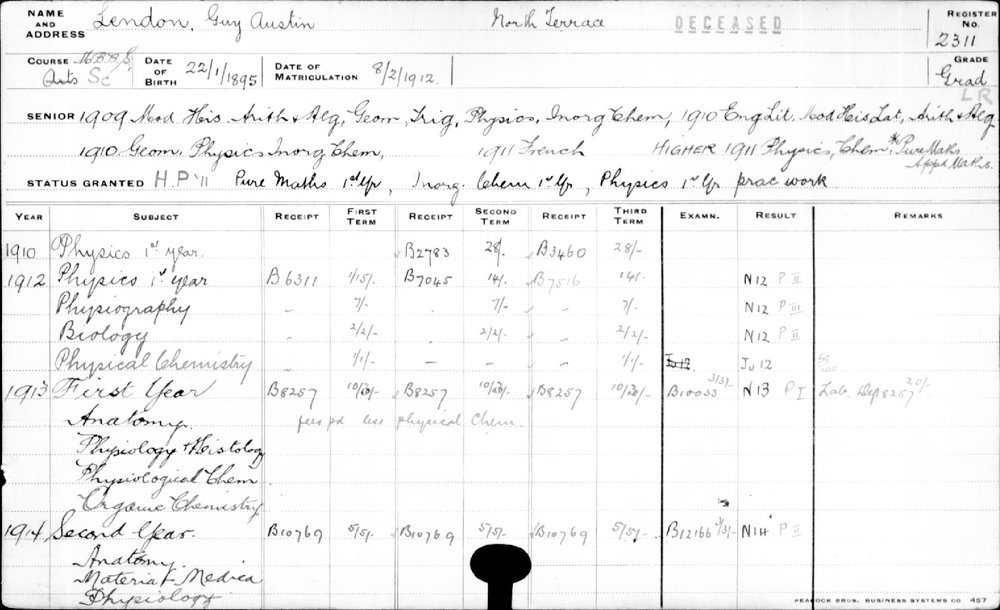 NAME AND ADDRESS Lendon, Guy Austin North Terrace DECEASED REGISTER No. 2311
COURSE M.B.B.S. Arts Sc DATE OF BIRTH 22/1/1895 DATE OF MATRICULATION 8/2/1912. GRADE Grad
LR
SENIOR 1909 Mod His Arith & Alg, Geom, Trig, Physics, Inorg Chem, 1910 Eng Lit. Mod His, Lat, Arith & Alg
1910 Geom. Physics Inorg Chem, 1911 French HIGHER 1911 Physics, Chem, Pure Maths
Appd Maths.
STATUS GRANTED H.P '11 Pure Maths 1st Yr, Inorg. Chem 1st Yr, Physics 1st Yr prac work
YEAR SUBJECT RECEIPT FIRST TERM RECEIPT SECOND TERM RECEIPT THIRD TERM EXAMN. RESULT REMARKS
1910 Physics 1st year. B2783 28/- B3460 28/-
1912 Physics 1st year B6311 1/15/- B7045 14/- B7516 14/- N12 P II
Physiography " 7/- " 7/- " 7/- N12 P III
Biology " 2/2/- " 2/2/- " 2/2/- N12 P II
Physical Chemistry " 1/1/- – – " 1/1/- Ju 12 Ju 12
1913 First Year B8257 B8257 B8257 B10033 3/3/- N13 P I Lab. Dep 8257 20/-
Anatomy. fees pd less physical Chem.
Physiology & Histology
Physiological Chem
Organic Chemistry
1914 Second Year. B10769 5/5/- B10769 5/5/- B10769 5/5/- B12166 3/3/- N14 P II
Anatomy
Materia Medica
Physiology
PEACOCK BROS. BUSINESS SYSTEMS CO 457